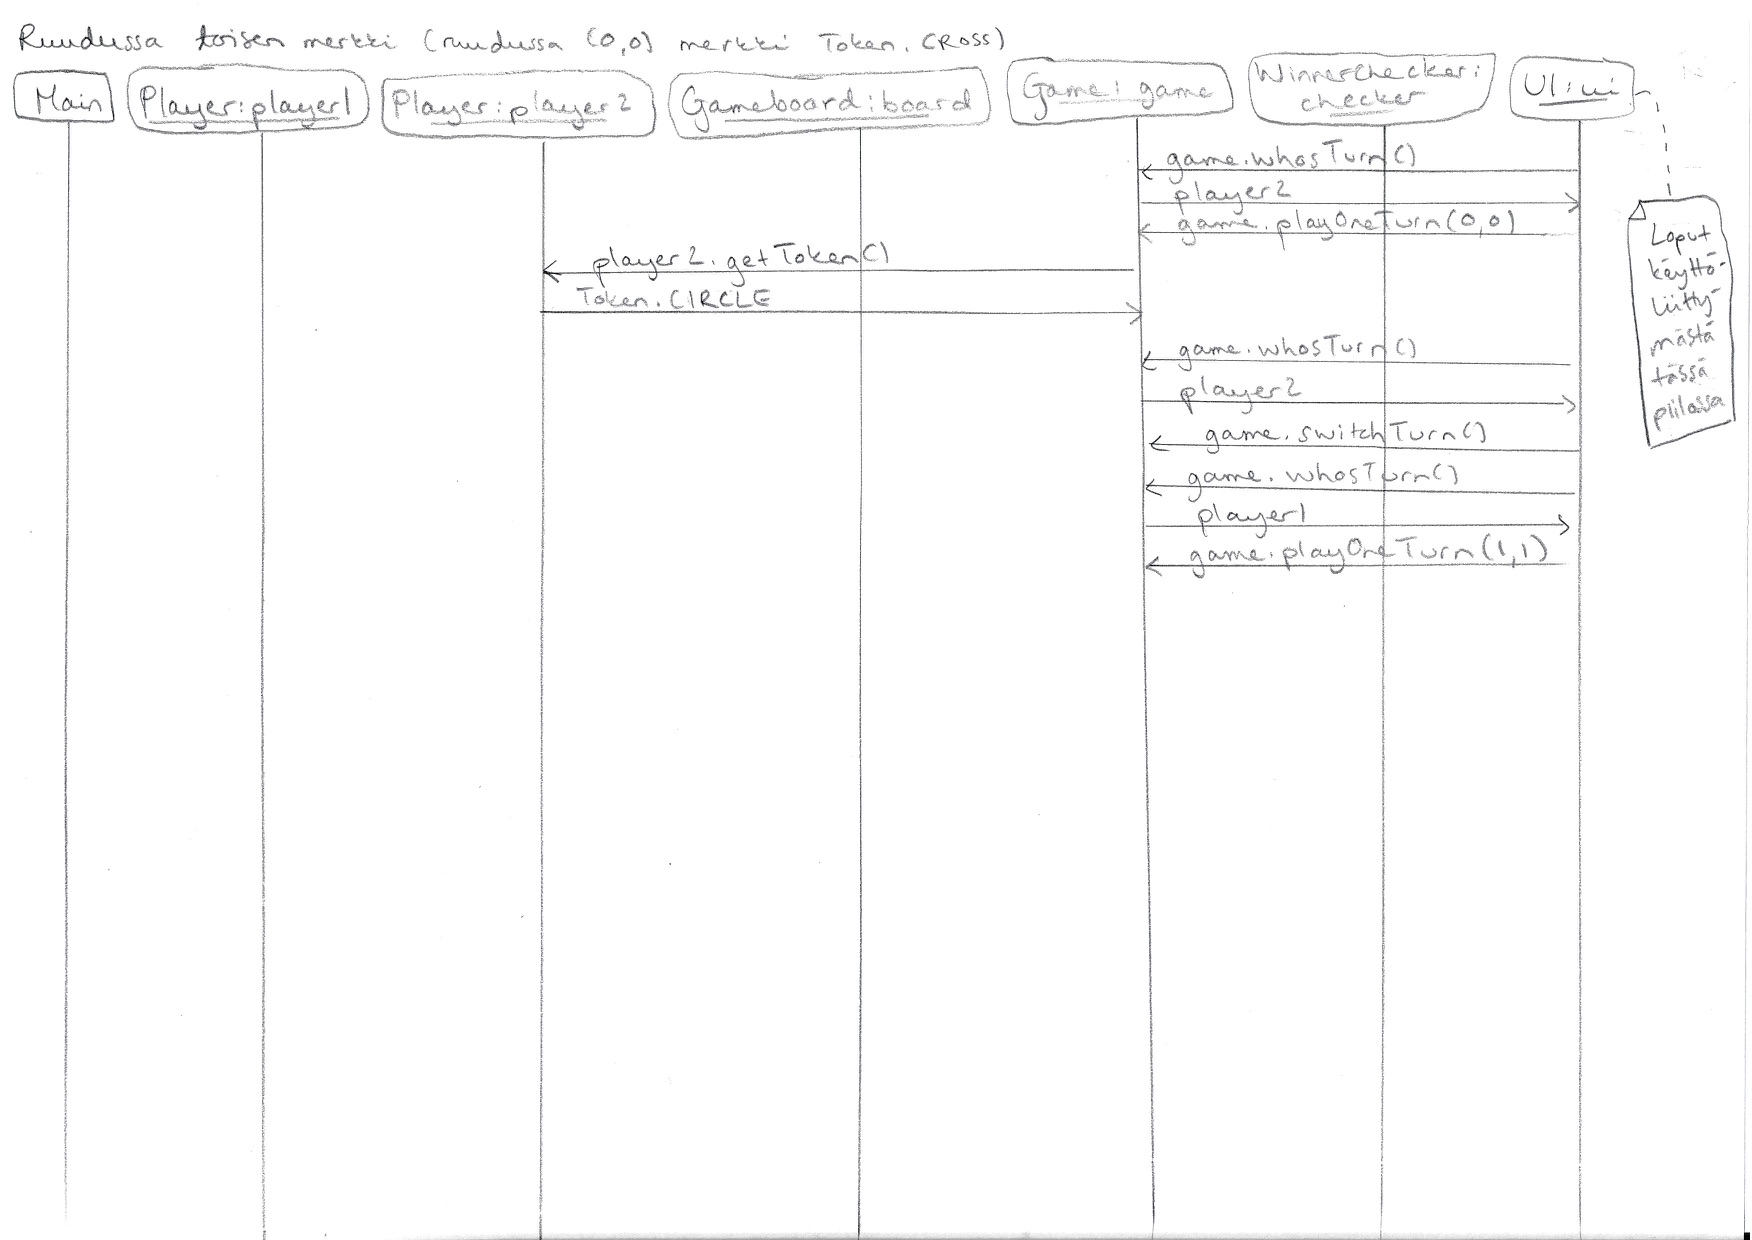 Ruudussa toisen merkki (ruudussa (0,0) merkki Token.CROSS)
Main
Player:player1
Player:player2
Gameboard:board
Game:game
Winnerchecker:
checker
UI:ui
game.whosTurn()
player2
game.playOneTurn(0,0)
player2.getToken()
Token.CIRCLE
game.whosTurn()
player2
game.switchTurn()
game.whosTurn()
player1
game.playOneTurn(1,1)
Loput
käyttö-
liitty
mästä
tässä
piilossa